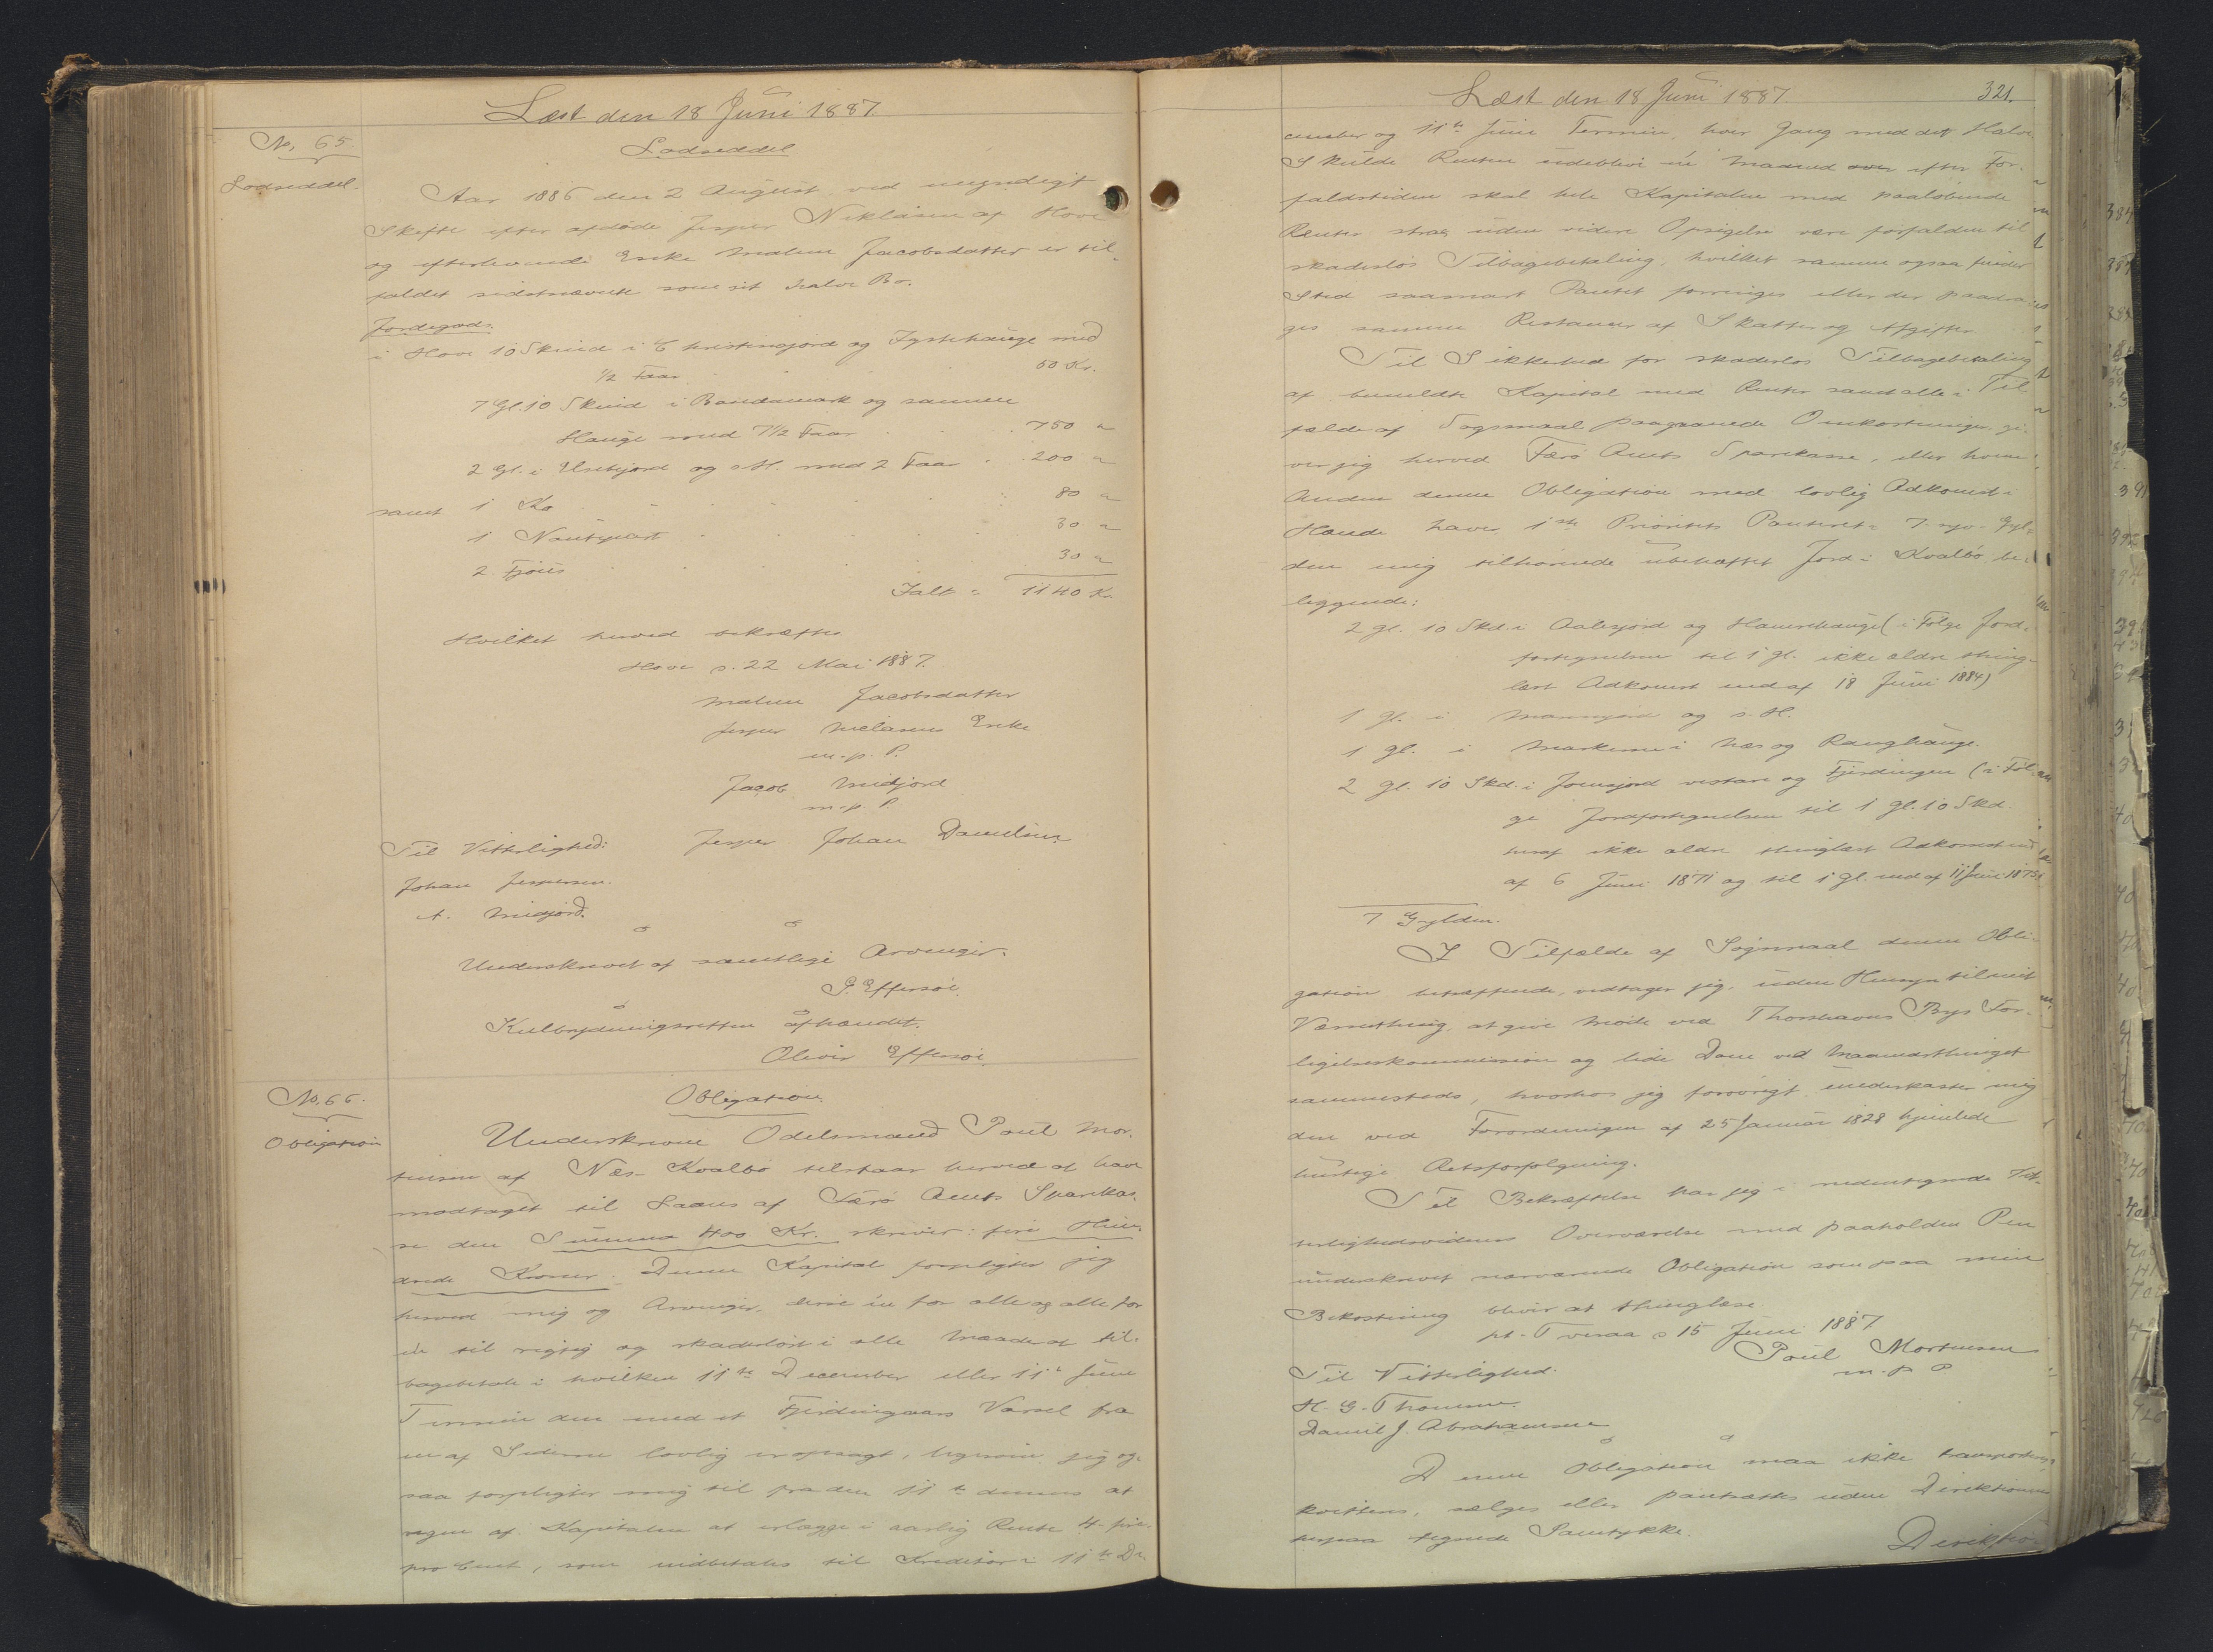 Læst den 18 Juni 1887.
No, 65.
Lodseddel
Lodseddel.
Aar 1886 den 2 August ved umyndigt
Skifte efter afdøde Jesper Niklasen af Hove
og efterlevende Enke Malene Jacobsdatter er til-
faldet sidstnævnte som sit halve Bo.
Jordegods.
i Hove 10 Skind i Christinajord og Hauge med
1/2 Faar 50 Kr.
7 Gl. 10 Skind i Bondamark og samme
Hauge med 7 1/2 Faar 750 "
2 Gl. i og s. H. med 2 Faar 200 "
samt 1 Ko 80 "
1 30 "
2 30 "
Ialt = 1140 Kr.
Hvilket herved bekræftes
Hove d. 22 Mai 1887.
Malene Jacobsdatter
Jesper Niclasens Enke
m. p. P.
Jacob Midjord
m. p. P.
Til Vitterlighed: Jesper Johan Danielsen
Johan Jespersen.
A. Midjord.
Underskrevet af samtlige Arvinger.
P. Effersøe.
afhændet.
Oliver Effersøe
No, 66.
Obligation
Obligation
Underskrevne Odelsmand Poul Mor-
tensen af Næs- Kvalbø tilstaar herved at have
modtaget til Laans af Færø Amts Sparekas-
se den Summa 400 Kr. skriver: fire Hun-
drede Kroner. Denne Kapital forpligter jeg
herved mig og Arvinger, disse én for alle og alle for
én til rigtig og skadesløst i alle Maader at til-
bagebetale i hvilken 11te December eller 11te Juni
Termin den med et Fjerdingaars Varsel fra
en af Siderne lovlig er opsagt, ligesom jeg og-
saa forpligter mig til fra den 11te dennes at
regne af Kapitalen at erlægge i aarlig Rente 4- fire-
pro Cent, som indbetales til Kreditor i 11te De-
Læst den 18 Juni 1887. 321.
cember og 11te Juni Termin, hver Gang med det Halve
Skulde Renten udeblive én Maaned over efter For-
faldstiden skal hele Kapitalen med paaløbende
Renter strax uden videre Opsigelse være forfalden til
skadesløs Tilbagebetaling, hvilket samme ogsaa finder
Sted saasnart Pantet forringes eller der paadra-
ges samme Restancer af Skatter og Afgifter.
Til Sikkerhed for skadesløs Tilbagebetaling
af bemeldte Kapital med Renter samt alle i Til-
fælde af Søgsmaal paagaaende Omkostninger, gi-
ver jeg herved Færø Amts Sparekasse, eller hvem
Anden denne Obligation med lovlig Adkomst i
Hænde haver, 1ste Prioritets Panteret i 7- syv- Gyl-
den mig tilhørende ubehæftet Jord i Kvalbø be-
liggende:
2 Gl. 10 Skd. i Aalesjord og Hamrehauge (i Følge Jord-
fortegnelsen til 1 Gl. ikke ældre thing-
læst Adkomst end af 18 Juni 1884)
1 Gl. i og s. H.
1 Gl. i Markerne i Næs og Ranghauge.
2 Gl. 10 Skd. i Joensjord vestare og Fjerdingen (i Føl-
ge Jordfortegnelsen til 1 Gl. 10 Skd.
heraf ikke ældre thinglæst Adkomst end
af 6 Juni 1871 og til 1 Gl. end af 11 Juni 1875)
7 Gylden.
I Tilfælde af Søgsmaal denne Obli-
gation betræffende, vedtager jeg, uden Hensyn til mit
Værnething, at give Møde ved Thorshavns Byes For-
ligelseskommission og lide Dom ved Maanedsthinget
sammesteds, hvorhos jeg forøvrigt underkaster mig
den ved Forordningen af 25 Januar 1828 hjemlede
hurtige Retsforfølgning.
Til Bekræftelse har jeg i nedentegnede Vit-
terlighedsvidners Overværelse med paaholden Pen
underskrevet nærværende Obligation som paa min
Bekostning bliver at thinglæse
pt. Tveraa d 15 Juni 1887
Poul Mortensen
m. p. P.
Til Vitterlighed.
H. G. Thomsen.
Daniel J. Abrahamsen
Denne Obligation maa ikke transporteres,
kvitteres, sælges eller pantsættes uden Direktionens
herpaa tegnede Samtykke.
Direktio-